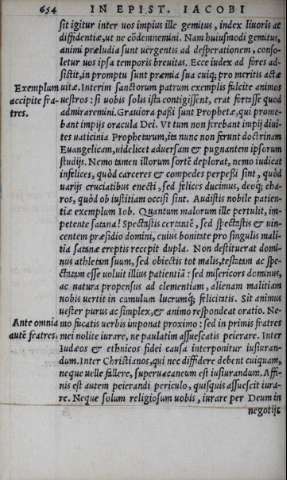 654 IN EPIST. IACOBI
sit igitur inter uos impius ille gemitus, index liuoris ac
diffidentiæ, ut ne cōdemnemini. Nam huiusmodi gemitus,
animi præludia sunt uergentis ad desperationem, conso-
letur uos ipsa temporis breuitas. Ecce iudex ad fores ad-
sistit, in promptu sunt præmia sua cuiq; pro meritis actæ
Exemplum uitæ. Interim sanctorum patrum exemplis fulcite animos
accipite fra- uestros: si uobis solis ista contigissent, erat fortasse quod
tres. admiraremini. Grauiora passi sunt Prophetæ, qui prome-
bant impijs oracula Dei. Vt tum non ferebant impij diui-
tes uaticinia Prophetarum, ita nunc non ferunt doctrinam
Euangelicam, uidelicet aduersam & pugnantem ipsorum
studijs. Nemo tamen illorum sortē deplorat, nemo iudicat
infelices, quòd carceres & compedes perpessi sint, quòd
uarijs cruciatibus enecti, sed felices ducimus, deoq; cha-
ros, quòd ob iustitiam occisi sint. Audistis nobile patien-
tiæ exemplum Iob. Quantum malorum ille pertulit, im-
petente satana? Spectastis certamē, sed spectastis & uin-
centem præsidio domini, cuius bonitate pro singulis mali-
tia satanæ ereptis recepit dupla. Non destituerat domi-
nus athletam suum, sed obiectis tot malis, testatam ac spe-
ctatam esse uoluit illius patientiā: sed misericors dominus,
ac natura propensus ad clementiam, alienam malitiam
nobis uertit in cumulum lucrumq; felicitatis. Sit animus
uester purus ac simplex, & animo respondeat oratio. Ne-
Ante omnia mo fucatis uerbis imponat proximo: sed in primis fratres
autē fratres. mei nolite iurare, ne paulatim assuescatis peierare. Inter
Iudæos & ethnicos fidei causa interponitur iusiuran-
dum. Inter Christianos, qui nec diffidere debent cuiquam,
neque uelle fallere, superuacaneum est iusiurandum. Affi-
nis est autem peierandi periculo, quisquis assuescit iura-
re. Neque solum religiosum uobis, iurare per Deum in
negotijs